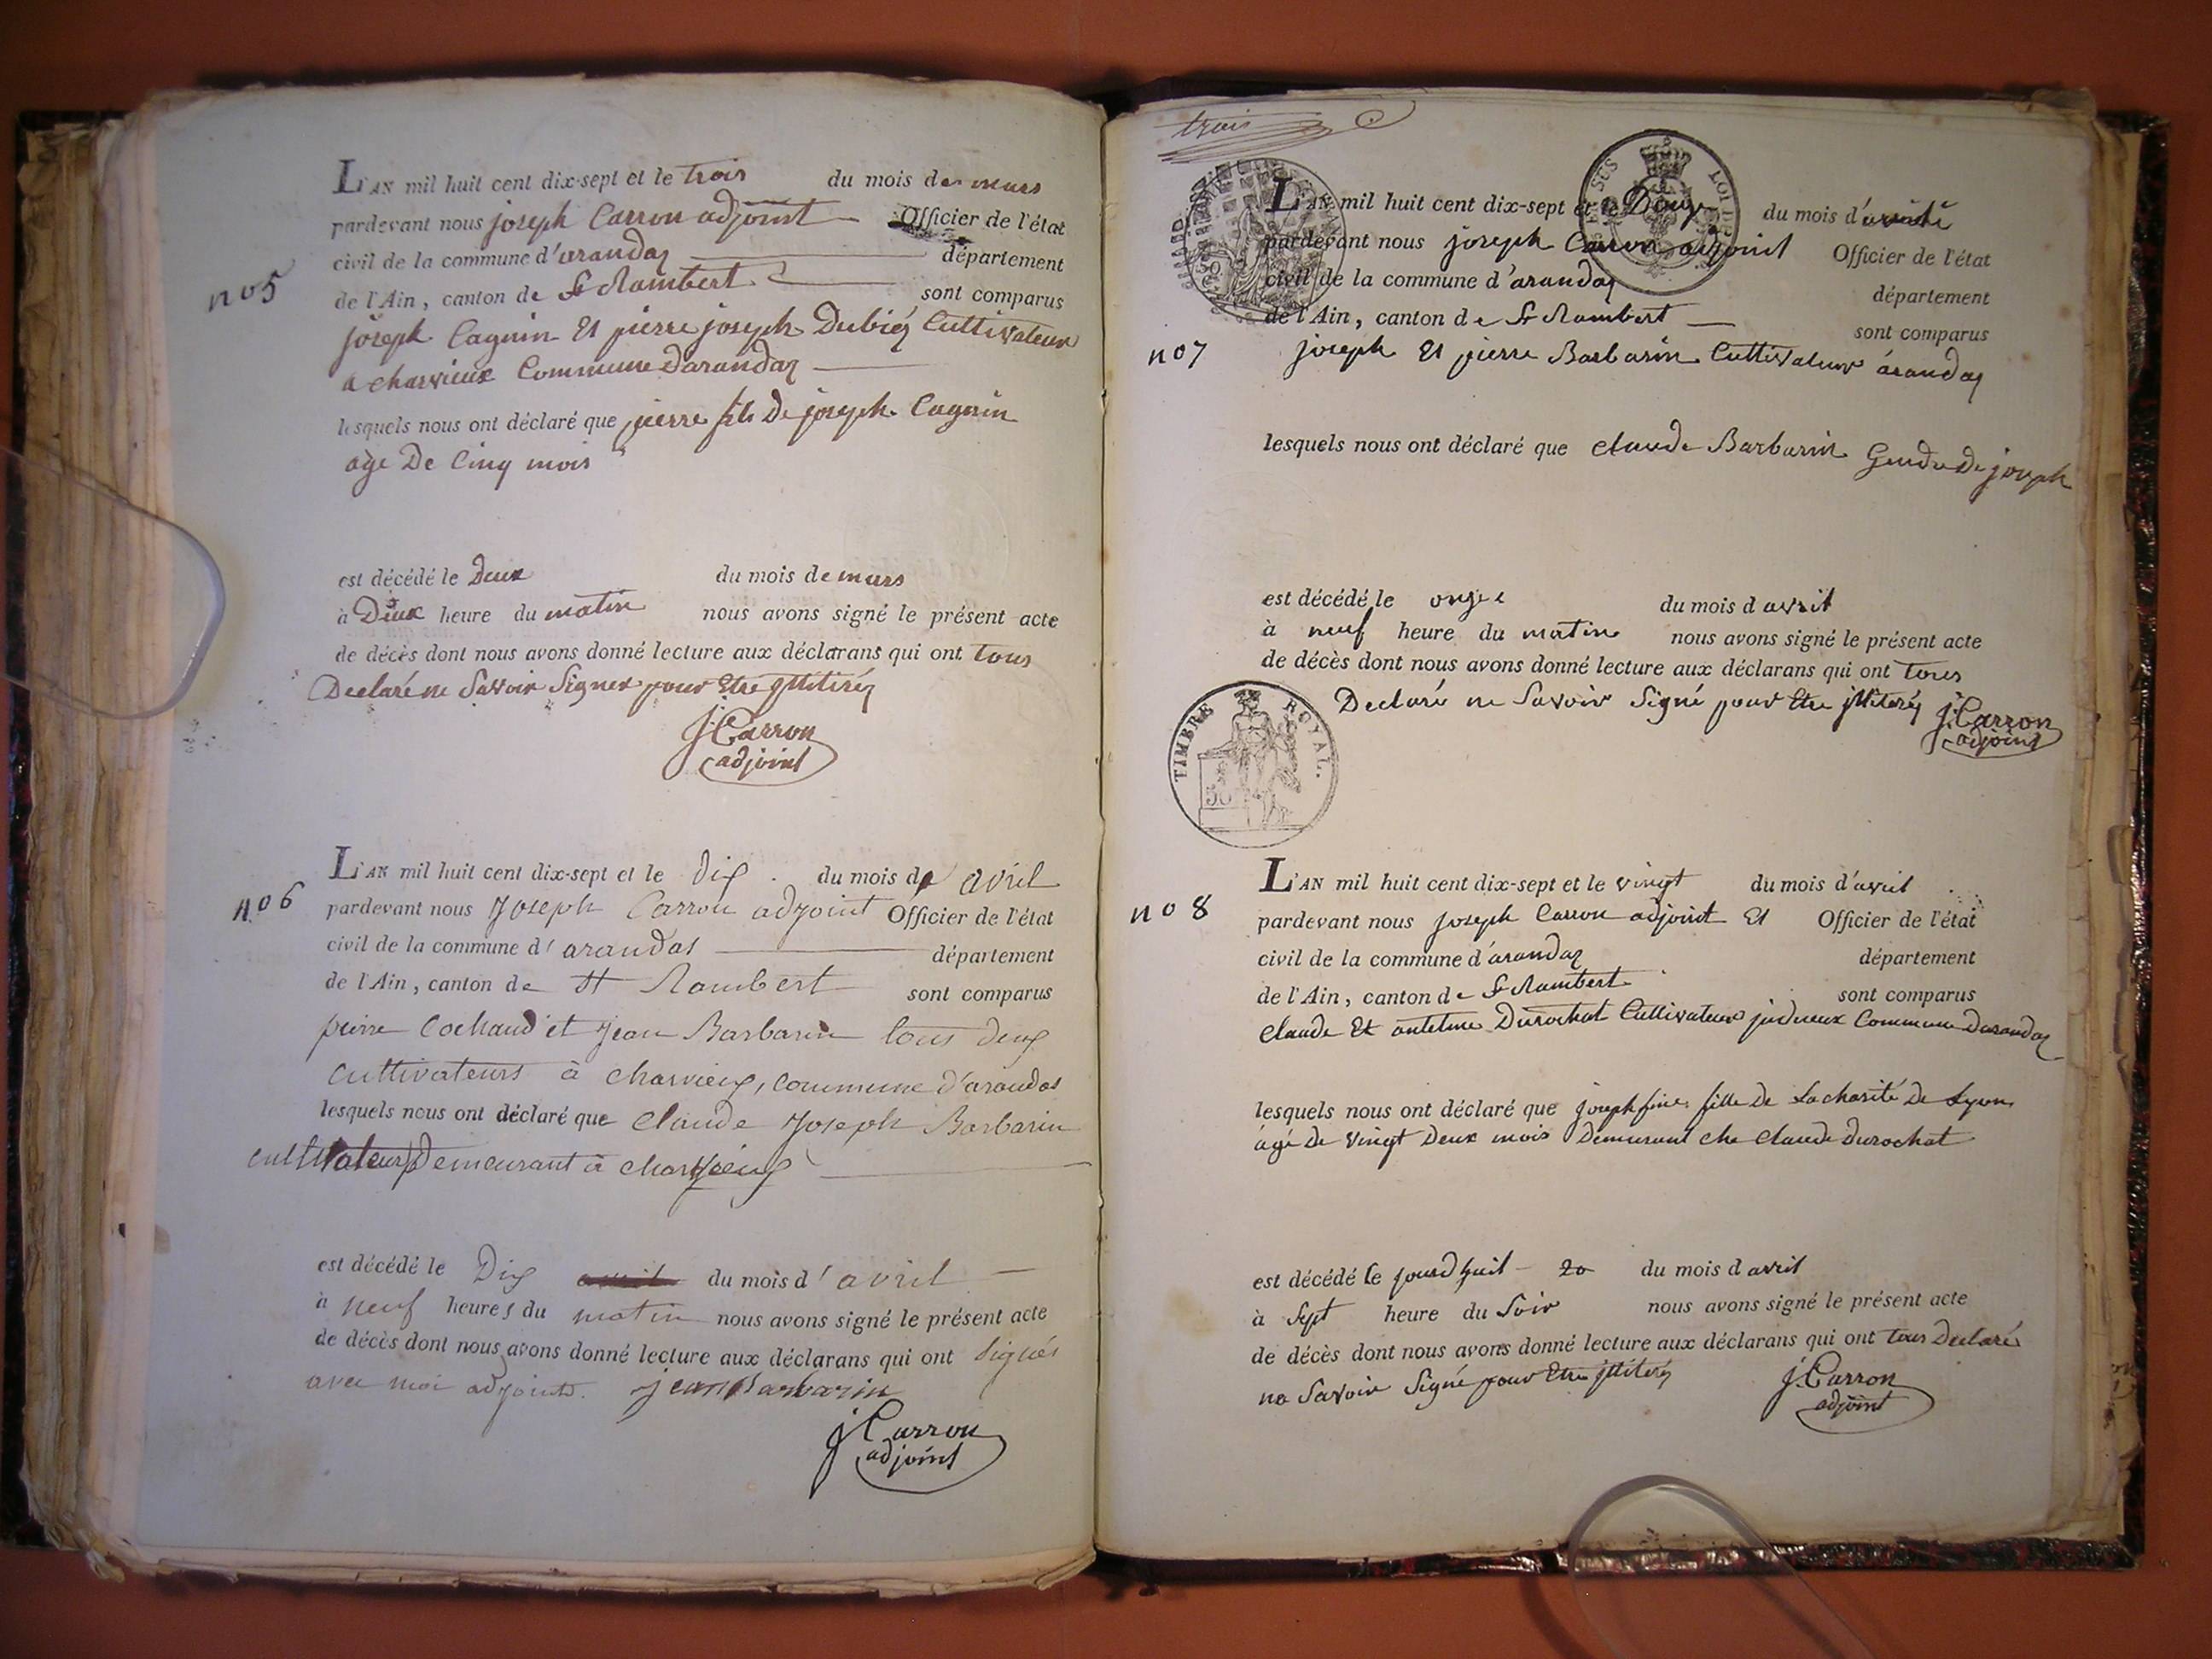 L'AN mil huit cent dix-sept et le trois du mois de mars
pardevant nous joseph Carron adjoint Officier de l'état
civil de la commune d'arandaz département
no5
de l'Ain, canton de St Rambert sont comparus
joseph Cagnin Et pierre joseph Dubiez Cultivateur
a charvieux Commune Darandaz
lesquels nous ont déclaré que pierre fils De joseph Cagnin
age De Cinq mois
est décédé le Deux du mois de mars
à Deux heure du matin nous avons signé le présent acte
de décès dont nous avons donné lecture aux déclarans qui ont tous
Declaré ne Savoir Signer pour Etre jllitéréz
J. Carron
adjoint
L'AN mil huit cent dix-sept et le dix du mois de avril
no 6
pardevant nous Joseph Carron adjoint Officier de l'état
civil de la commune d'arandas département
de l'Ain, canton de St Rambert sont comparus
pierre Cochaud et jean Barbarin tous deux
cultivateurs à charvieux, commune d'arandas
lesquels nous ont déclaré que Claude Joseph Barbarin
cultivateur Demeurant à charvieux
est décédé le Dix du mois d'avril
à neuf heures du matin nous avons signé le présent acte
de décès dont nous avons donné lecture aux déclarans qui ont signés
avec moi adjoint. jean Barbarin
J. Carron
adjoint
trois
L'AN mil huit cent dix-sept et le Douze du mois d'
pardevant nous joseph Carron adjoint Officier de l'état
civil de la commune d'arandaz département
de l'Ain, canton de St Rambert sont comparus
no7
joseph Et pierre Barbarin Cultivateur árandaz
lesquels nous ont déclaré que claude Barbarin Gendre De joseph
est décédé le onze du mois d avril
à neuf heure du matin nous avons signé le présent acte
de décès dont nous avons donné lecture aux déclarans qui ont tous
Declaré ne Savoir Signé pour Etre jllitéréz J. Carron
adjoint
TIMBRE ROYAL.
50
L'AN mil huit cent dix-sept et le vingt du mois d'avril
no 8
pardevant nous Joseph Carron adjoint Et Officier de l'état
civil de la commune d'arandaz département
de l'Ain, canton de St Rambert sont comparus
Claude Et antelme Durochat Cultivateur Commune Darandaz
lesquels nous ont déclaré que josephfine fille De La charité De Lyon
àgé De vingt Deux mois Demurant che Claude Durochat
est décédé le jourdhuit 20 du mois d avril
à Sept heure du Soir nous avons signé le présent acte
de décès dont nous avons donné lecture aux déclarans qui ont tous Declaré
ne Savoir Signé pour Etre jllitéréz J. Carron
adjoint